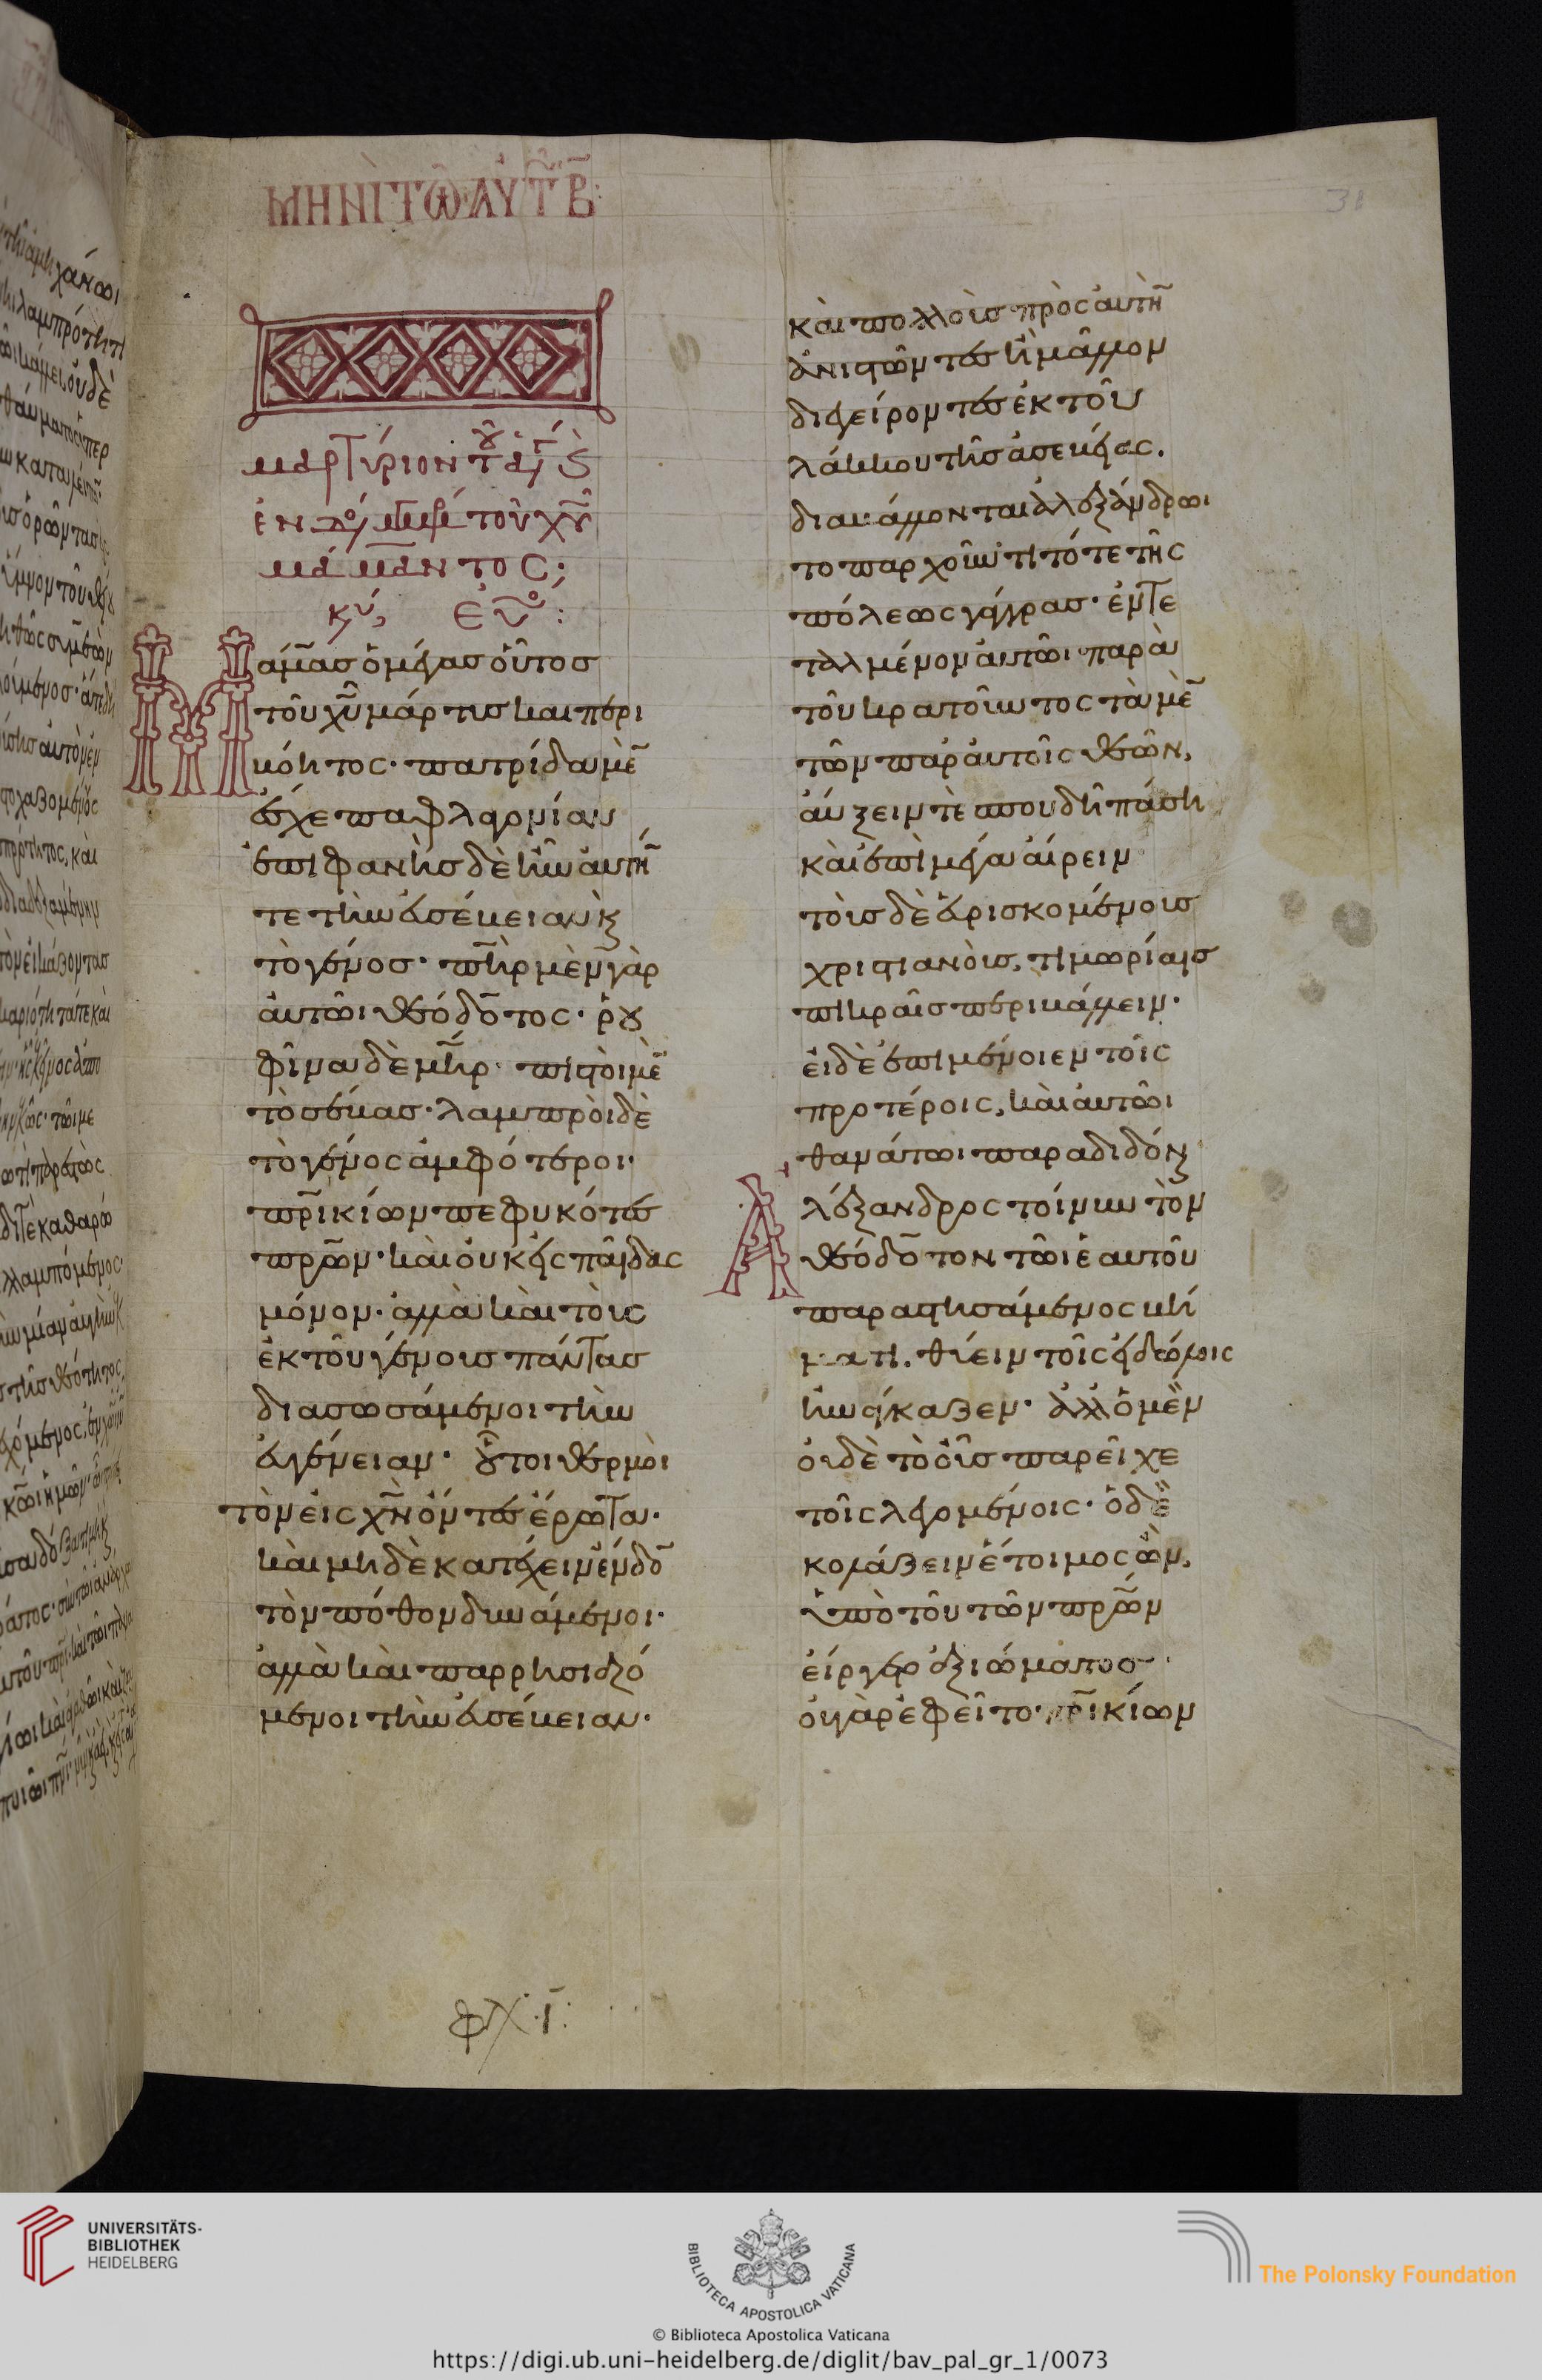 ΜΗΝῚ ΤΩ͂ ΑΥΤ͂ Β̄:
μαρτύριον τοῦ ἁγί
ἐνδόξ μεγαλομάρ τοῦ χῦ
μάμαντος;
κύ, ε̉υ̃λο:
Μάμας ὁ μέγας οὗτος
τοῦ χῦ μάρτυς καὶ περι
βόητος· πατρίδα μὲ̄
ἔσχε παφλαγονίαν
ἐπιφανὴς δὲ ἦν ἀυτή̄
τε τὴν ἐυσέβειαν κ
τὸ γένος· πη̄ρ μὲν γὰρ
ἀυτῶι θεόδοτος· ῥου
φῖνα δὲ μη̄ρ· πιστοὶ μὲ̄
τὸ σέβας· λαμπροὶ δὲ
τὸ γένος ἀμφότεροι·
πρ̄ικίων πεφυκότες
πρ̄ων· καὶ ὀυκ εἰς παῖδας
μόνον· ἀλλὰ καὶ τοὺς
ἐκ τοῦ γένους πάντας
διασωσάμενοι τὴν
ἐυγένειαν· οὗτοι θερμοὶ
τὸν εἰς χ̄ν ὄντες ἔρωτα·
καὶ μηδὲ κατέχειν ἔνδο̄
τὸν πόθον δυνάμενοι·
ἀλλὰ καὶ παρρησιαζό
μενοι τὴν ἐυσέβειαν·
καὶ πολλοὺς πρὸς ἀυτὴ̄
ἀνιστῶντες ἢ μᾶλλον
διεγείροντες ἐκ τοῦ
λάκκου τῆς ἀσεβείας.
διαβάλλονται ἀλεξάνδρωι
τοπαρχοῦντι τότε τῆς
πόλεως γάγγρας· ἐντε
ταλμένον ἀυτῶι παρὰ
τοῦ κρατοῦντος τὰ μὲ̄
τῶν παρ ἀυτοῖς θεῶν,
ἀύξειν τὲ σπουδῆ πάση
καὶ ἐπὶ μέγα ἄιρειν
τοὺς δὲ εὑρισκομένους
χριστιανοὺς, τιμωρίαις
πικραῖς περιβάλλειν·
ἐι δὲ ἐπιμένοιεν τοῖς
προτέροις, καὶ αυτῶι
θανάτωι παραδιδόναι
Ἀλέξανδρος τοίνυν τὸν
θεόδοτον τῶι ἑαυτοῦ
παραστησάμενος βή
ματι. θύειν τοῖς εἰδώλοις
ἠνάγκαζεν· ἀλλ ὁ μὲν
ὀυδὲ τὸ οὖς παρεῖχε
τοῖς λεγομένοις· ὁ δὲ
κολάζειν ἕτοιμος ὢν,
ὑπὸ τοῦ τῶν πρ̄ων
ἐίργετο ἀξιώματος·
ὀυ γὰρ ἐφεῖτο πρ̄ικίων
φ Χ·ῑ:
38
UNIVERSITÄTS-
BIBLIOTHEK
HEIDELBERG
BIBLIOTECA APOSTOLICA VATICANA
The Polonsky Foundation
© Biblioteca Apostolica Vaticana
https://digi.ub.uni-heidelberg.de/diglit/bav_pal_gr_1/0073